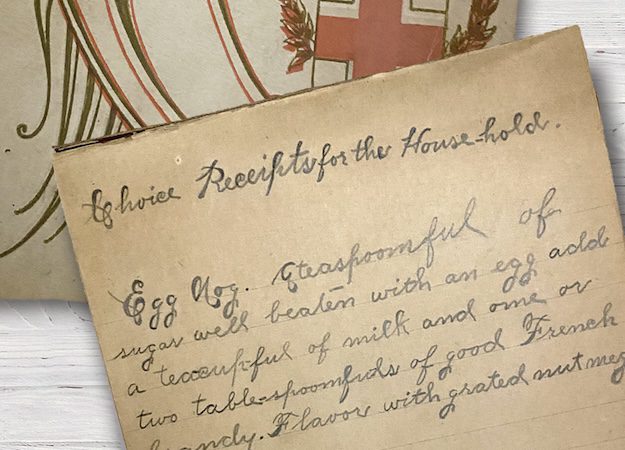 Choice Receipts for the House-hold.
Egg Nog. teaspoonful of
sugar well beaten with an egg add
a teacup-ful of milk and one or
two table-spoonfuls of good French
brandy. Flavor with grated nutmeg